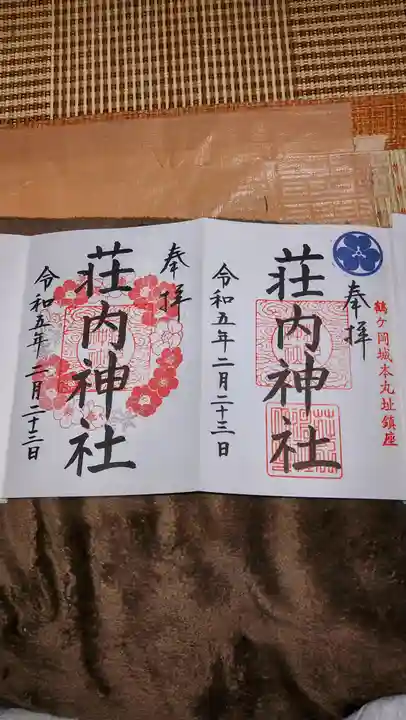 鶴ヶ岡城本丸址鎮座
奉拝
荘内神社
令和五年二月二十三日
奉拝
荘内神社
令和五年二月二十三日